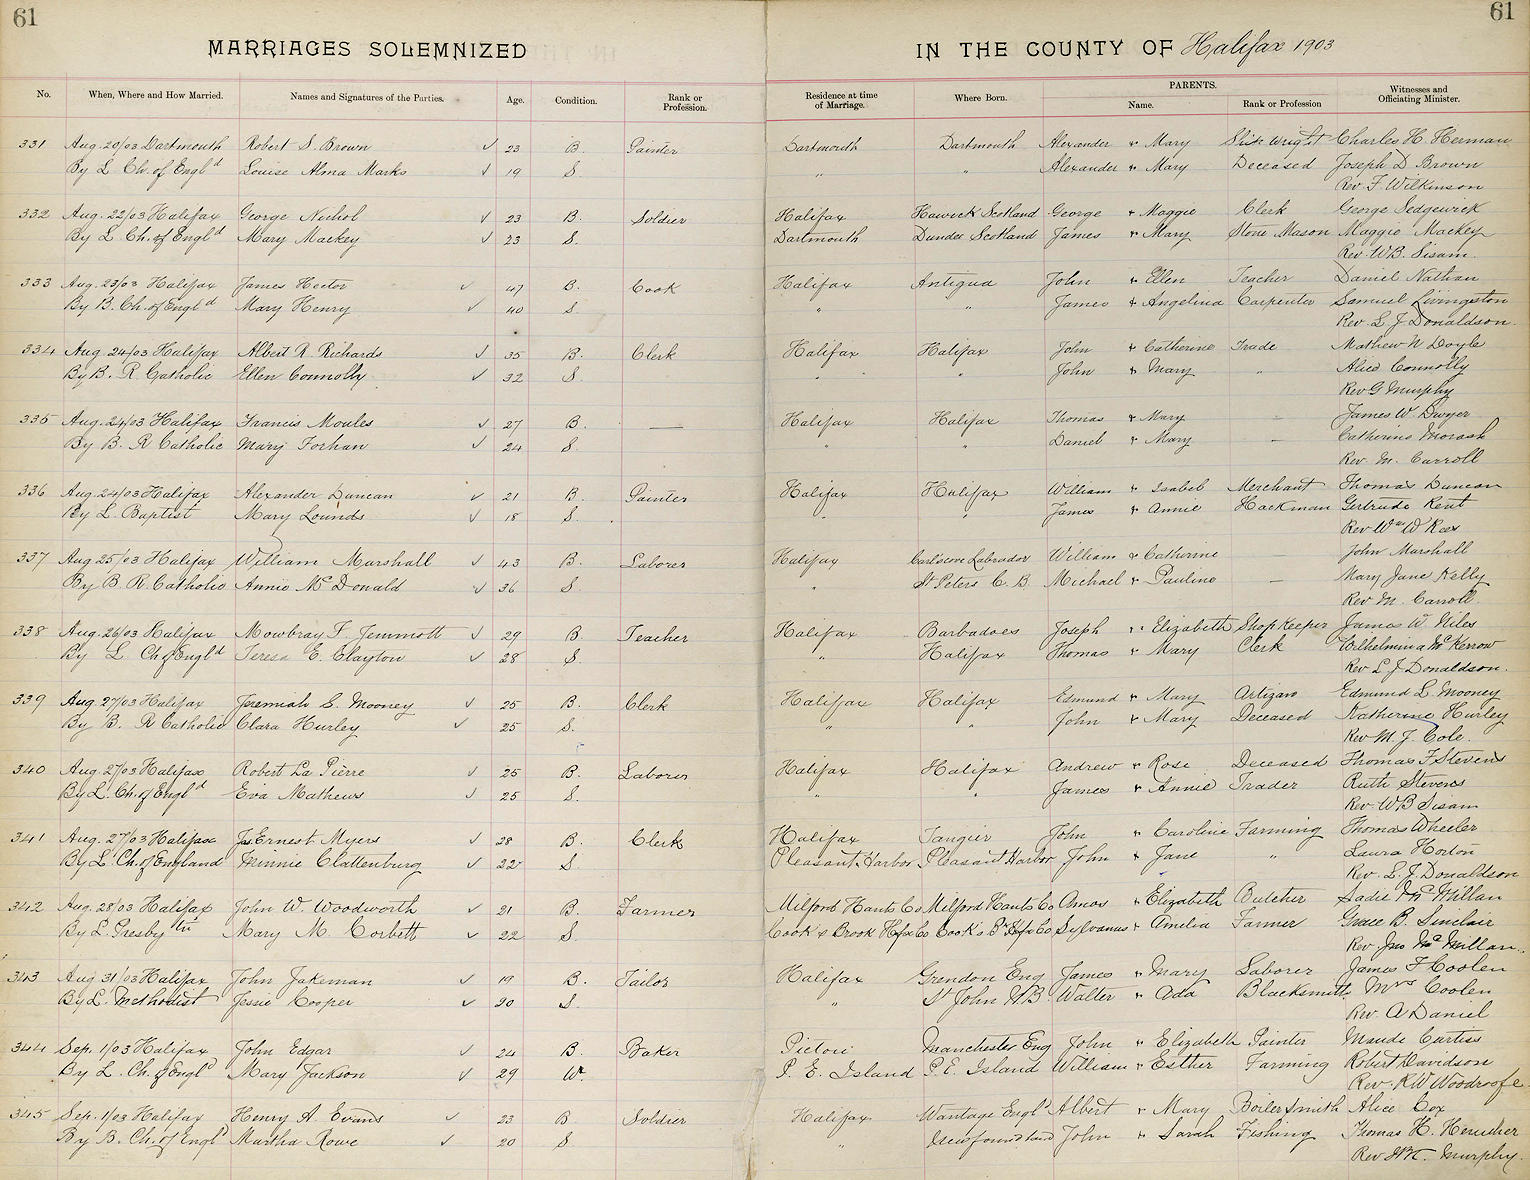 61
61
MARRIAGES SOLEMNIZED
IN THE COUNTY OF Halifax 1903
No. When, Where and How Married. Names and Signatures of the Parties. Age. Condition. Rank or Profession. Residence at time of Marriage. Where Born. PARENTS. Name. Rank or Profession Witnesses and Officiating Minister.
331 Aug. 20/03 Dartmouth Robert S. Brown ✓ 23 B. Painter Dartmouth Dartmouth Alexander & Mary Ship Wright Charles H. Herman
By L Ch. of Engld Louise Alma Marks ✓ 19 S „ „ Alexander & Mary Deceased Joseph D Brown
Rev F. Wilkinson
332 Aug. 22/03 Halifax George Nichol ✓ 23 B. Soldier Halifax Hawick Scotland George & Maggie Clerk George Sedgewick
By L. Ch. of Engld Mary Mackey ✓ 23 S. Dartmouth Dundee Scotland James & Mary Stone Mason Maggie Mackey
Rev. W.B. Sisam.
333 Aug. 23/03 Halifax James Hector ✓ 47 B. Cook Halifax Antigua John & Ellen Teacher Daniel Nathan
By B. Ch. of Engld Mary Henry ✓ 40 S. „ „ James & Angelina Carpenter Samuel Livingston
Rev. L. J Donaldson.
334 Aug. 24/03 Halifax Albert R. Richards ✓ 35 B. Clerk Halifax Halifax John & Catherine Trade Mathew N Doyle
By B. R Catholic Ellen Connolly ✓ 32 S. „ „ John & Mary „ Alice Connolly
Rev G Murphy
335 Aug. 24/03 Halifax Francis Moules ✓ 27 B. — Halifax Halifax Thomas & Mary James W Dwyer
By B. R Catholic Mary Forhan ✓ 24 S. „ „ Daniel & Mary — Catherine Morash
Rev. M. Carroll
336 Aug. 24/03 Halifax Alexander Duncan ✓ 21 B. Painter Halifax Halifax William & Isabel Merchant Thomas Duncan
By L. Baptist Mary Lounds ✓ 18 S. „ „ James & Annie Hackman Gertrude Kent
Rev Wm W Rees
337 Aug 25/03 Halifax William Marshall ✓ 43 B. Laborer Halifax Labrador William & Catherine — John Marshall
By B. R. Catholic Annie McDonald ✓ 36 S. „ St Peters C. B. Michael & Pauline — Mary Jane Kelly
Rev M. Carroll.
338 Aug. 26/03 Halifax Mowbray F. Jemmott ✓ 29 B. Teacher Halifax Barbadoes Joseph & Elizabeth Shop Keeper James W. Niles
By L Ch of Engld Teresa E. Clayton ✓ 28 S. „ Halifax Thomas & Mary Clerk Wilhelmina McKerrow
Rev L J Donaldson.
339 Aug. 27/03 Halifax Jeremiah S. Mooney ✓ 25 B. Clerk Halifax Halifax Edmund & Mary Artizan Edmund L. Mooney
By B. R Catholic Clara Hurley ✓ 25 S. „ „ John & Mary Deceased Katherine Hurley
Rev M. J. Cole.
340 Aug. 27/03 Halifax Robert La Pierre ✓ 25 B. Laborer Halifax Halifax Andrew & Rose Deceased Thomas F Stevens
By L. Ch. of Engld Eva Mathews ✓ 25 S. „ „ James & Annie Trader Ruth Stevens
Rev. W B Sisam
341 Aug. 27/03 Halifax Jas. Ernest Myers ✓ 28 B. Clerk Halifax Tangier John & Caroline Farming Thomas Wheeler
By L. Ch. of England Minnie Clattenburg ✓ 22 S. Pleasant Harbor Pleasant Harbor John & Jane „ Laura Horton
Rev. L. J. Donaldson
342 Aug. 28/03 Halifax John W. Woodworth ✓ 21 B. Farmer Milford Hants Co Milford Hants Co Amos & Elizabeth Butcher Sadie McMillan
By L. Presbytn Mary M. Corbett ✓ 22 S. Cook's Brook Hfx Co Cook's Bk Hfx Co Sylvanus & Amelia Farmer Grace B. Sinclair
Rev Jno McMillan.
343 Aug 31/03 Halifax John Jakeman ✓ 19 B. Tailor Halifax Grendon Eng James & Mary Laborer James F Coolen
By L. Methodist Jessie Cooper ✓ 20 S. „ St John N B Walter & Ada Blacksmith Mrs Coolen
Rev. A Daniel
344 Sep. 1/03 Halifax John Edgar ✓ 24 B. Baker Pictou Manchester Eng John & Elizabeth Painter Maude Curtiss
By L. Ch. of Engld Mary Jackson ✓ 29 W. P. E. Island P. E. Island William & Esther Farming Robert Davidson
Rev. K W Woodroofe
345 Sep. 1/03 Halifax Henry A. Evans ✓ 23 B. Soldier Halifax Wantage Engld Albert & Mary Boiler Smith Alice Cox
By B. Ch. of Engld Martha Rowe ✓ 20 S „ Newfoundland John & Sarah Fishing Thomas H.
Rev Murphy.